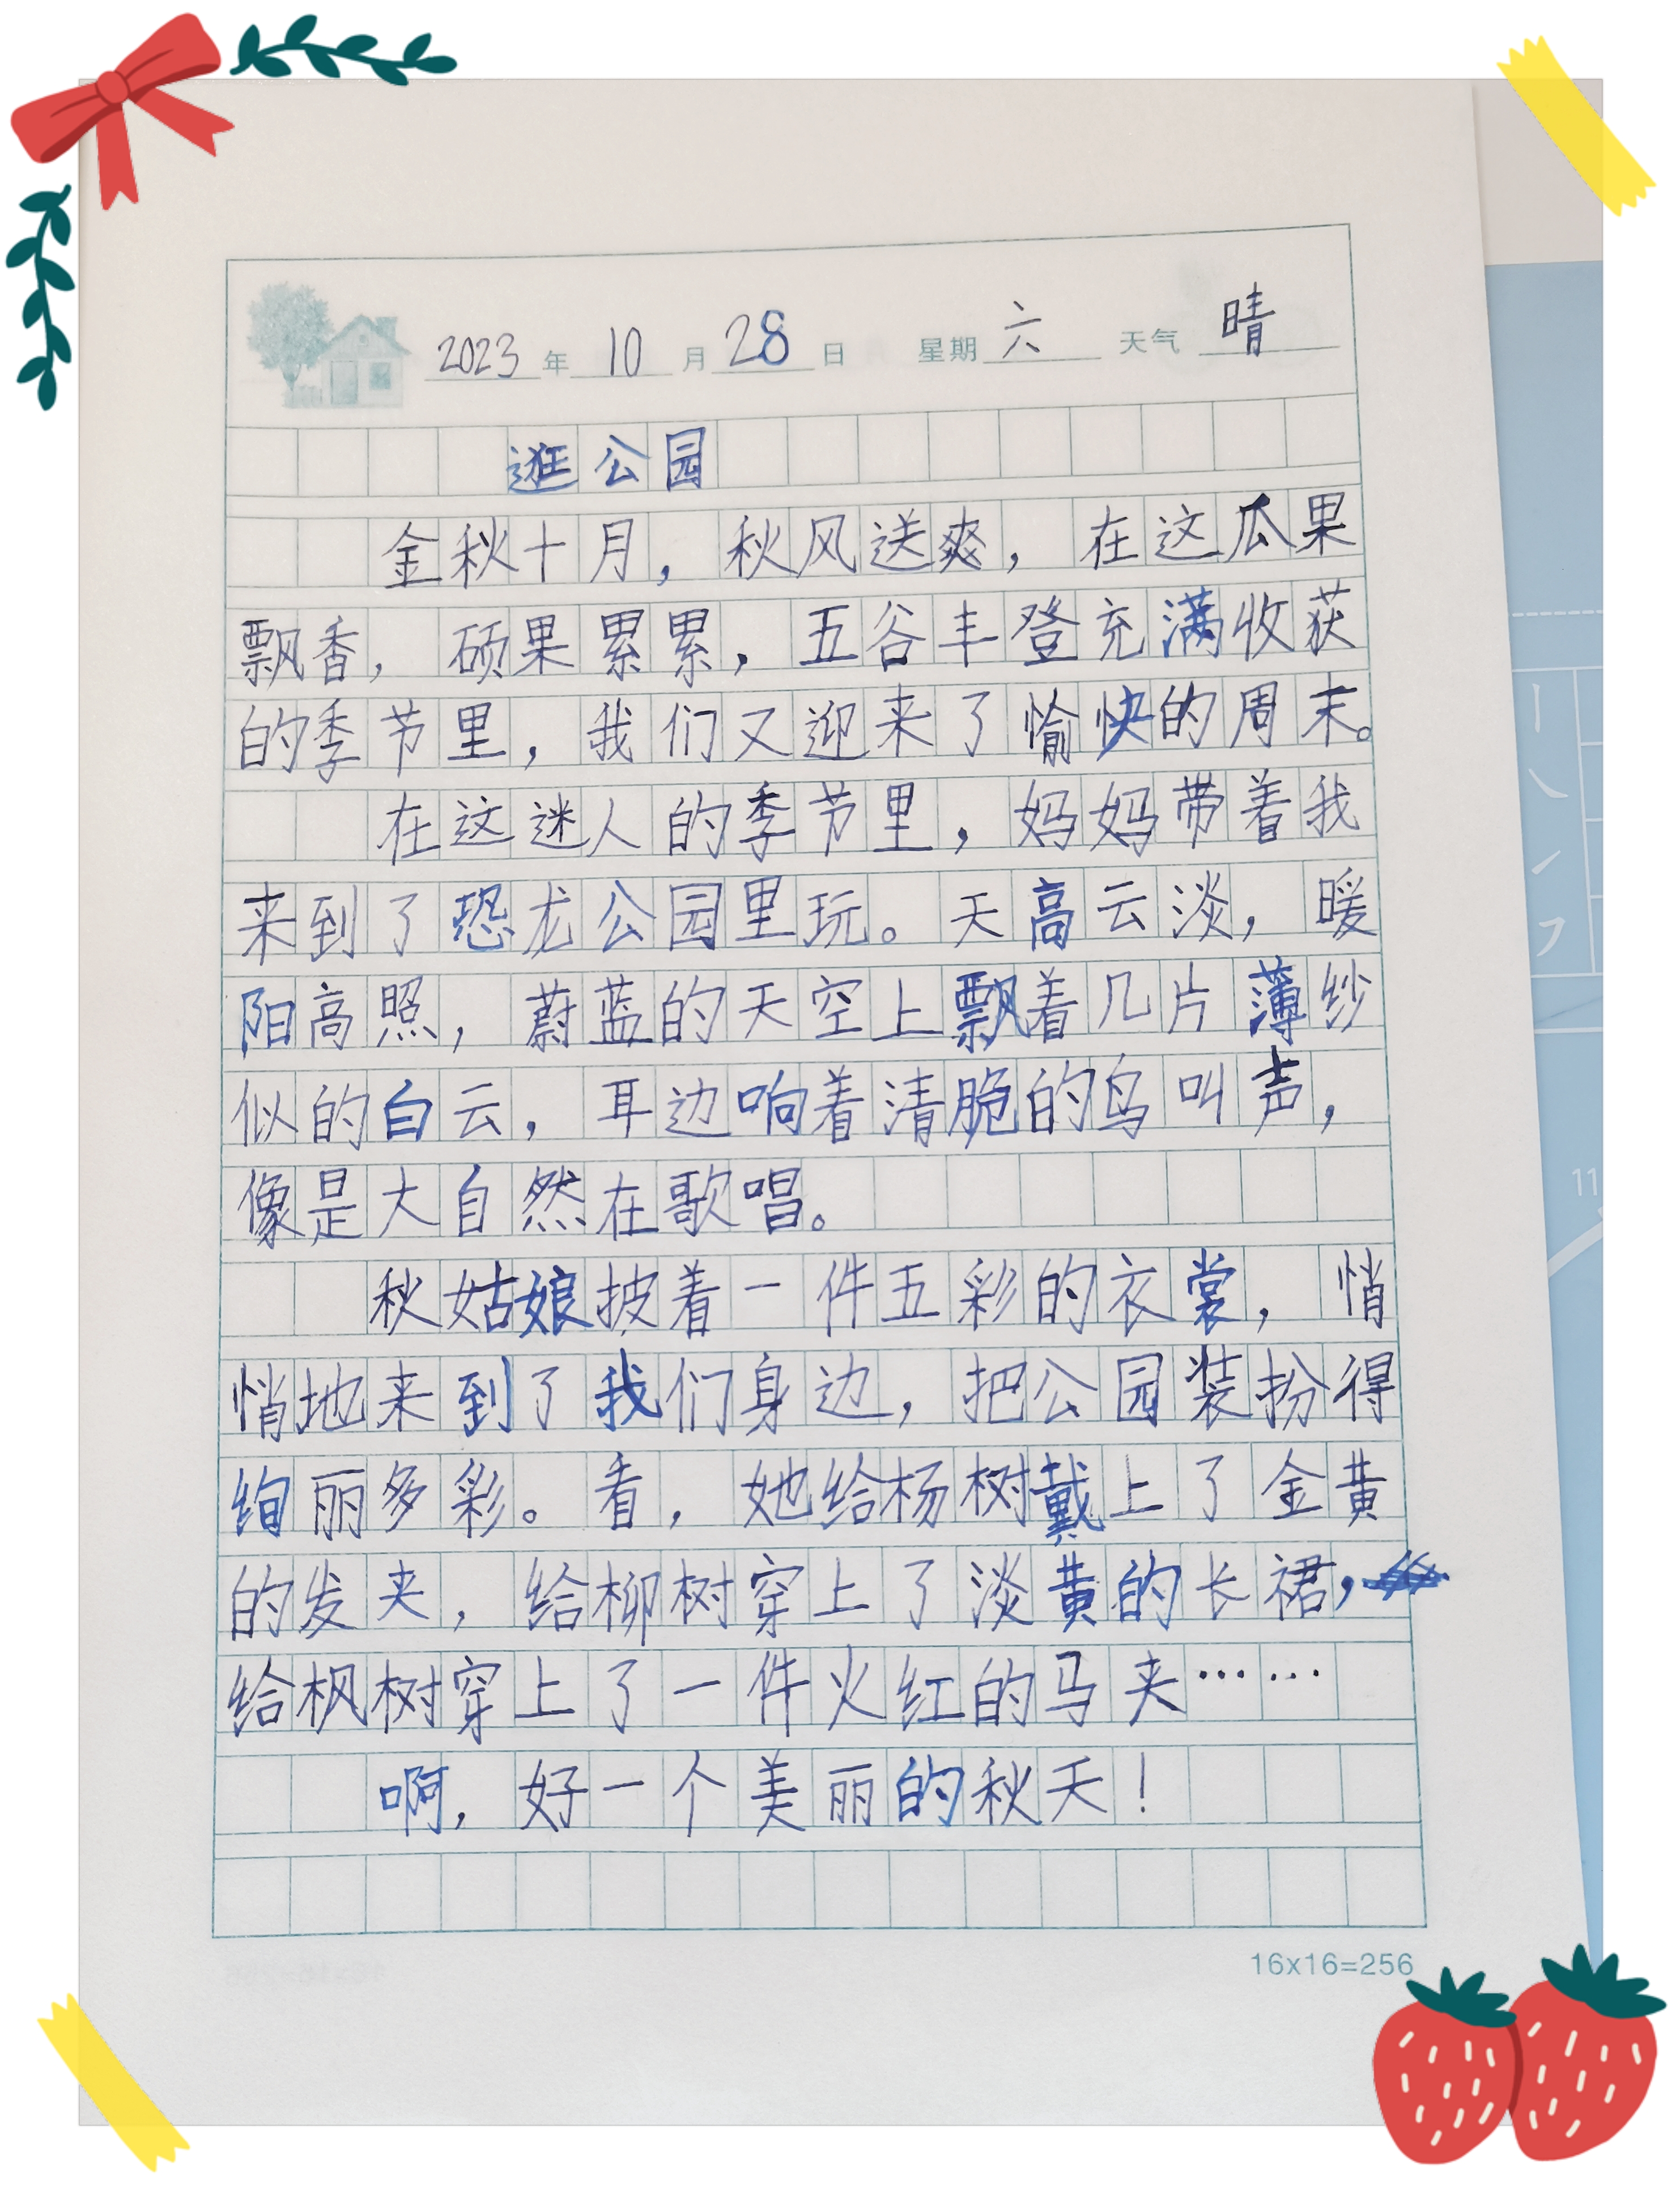 2023年10月28日 星期六 天气晴
逛公园
金秋十月，秋风送爽，在这瓜果
飘香，硕果累累，五谷丰登充满收获
的季节里，我们又迎来了愉快的周末。
在这迷人的季节里，妈妈带着我
来到了恐龙公园里玩。天高云淡，暖
阳高照，蔚蓝的天空上飘着几片薄纱
似的白云，耳边响着清脆的鸟叫声，
像是大自然在歌唱。
秋姑娘披着一件五彩的衣裳，悄
悄地来到了我们身边，把公园装扮得
绚丽多彩。看，她给杨树戴上了金黄
的发夹，给柳树穿上了淡黄的长裙，
给枫树穿上了一件火红的马夹……
啊，好一个美丽的秋天！
16x16=256
11